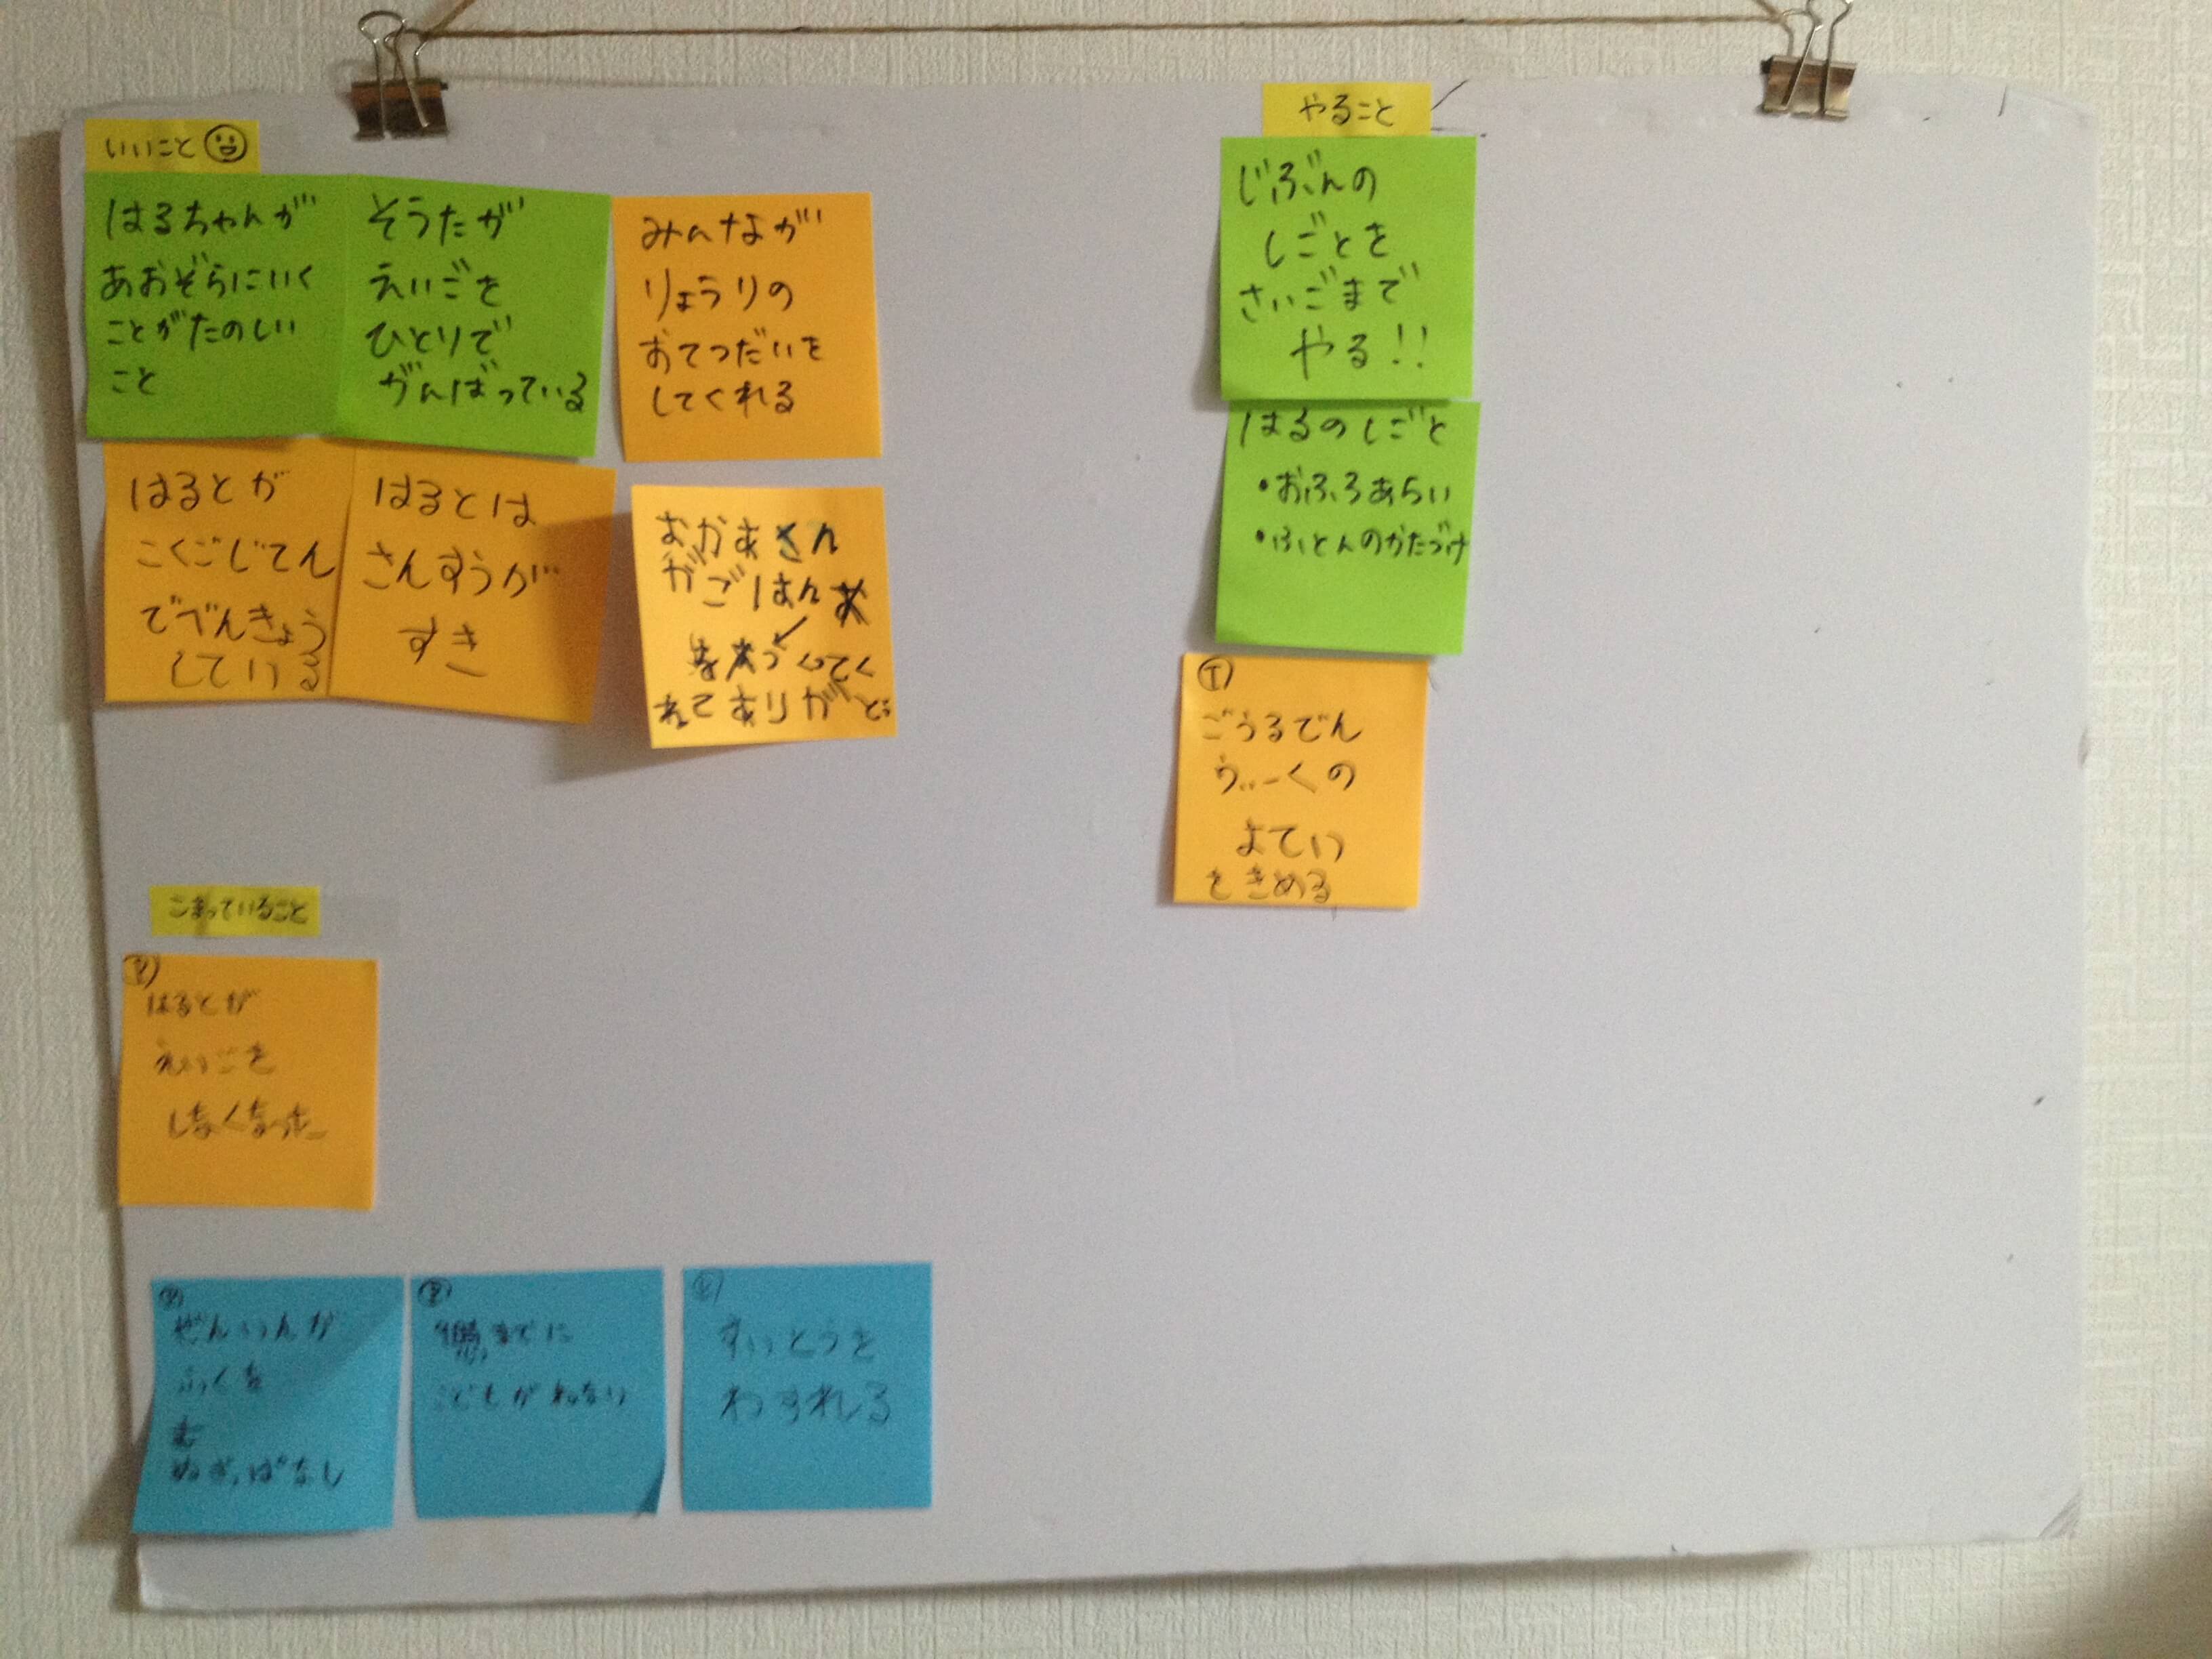 いいこと
はるちゃんが
あおぞらにいく
ことがたのしい
こと
そうたが
えいごを
ひとりで
がんばっている
みんなが
りょうりの
おてつだいを
してくれる
はるとが
こくごじてん
でべんきょう
している
はるとは
さんすうが
すき
おかあさん
がごはん
をつくってく
れてありがとう
こまっていること
はるとが
えいごを
しなくなった
ぜんいんが
ふくを
ぬぎっぱなし
までに
こどもがねない
すいとうを
わすれる
やること
じぶんの
しごとを
さいごまで
やる!!
はるのしごと
・おふろあらい
・ふとんのかたづけ
ごうるでん
うぃーくの
よてい
をきめる